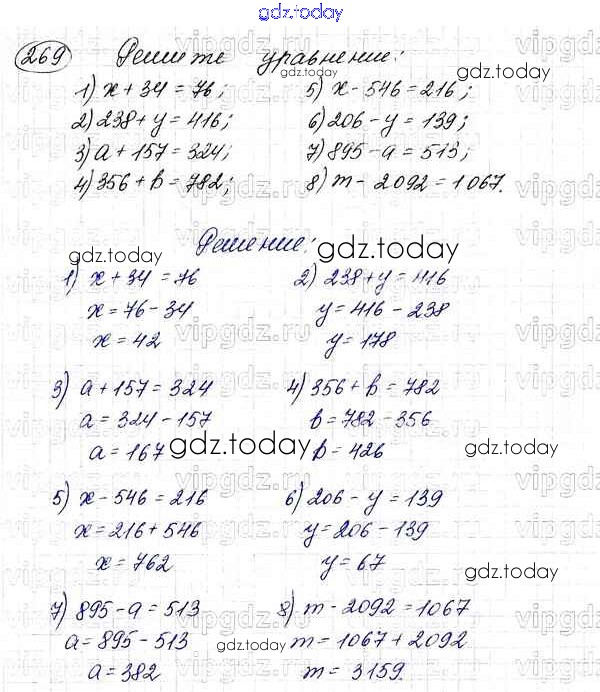 gdz.today
269 Решите уравнение:
1) x + 34 = 76; 5) x - 546 = 216;
2) 238 + y = 416; 6) 206 - y = 139;
3) a + 157 = 324; 7) 895 - a = 513;
4) 356 + b = 782; 8) m - 2092 = 1067.
Решение:
1) x + 34 = 76 2) 238 + y = 416
x = 76 - 34 y = 416 - 238
x = 42 y = 178
3) a + 157 = 324 4) 356 + b = 782
a = 324 - 157 b = 782 - 356
a = 167 b = 426
5) x - 546 = 216 6) 206 - y = 139
x = 216 + 546 y = 206 - 139
x = 762 y = 67
7) 895 - a = 513 8) m - 2092 = 1067
a = 895 - 513 m = 1067 + 2092
a = 382 m = 3159.